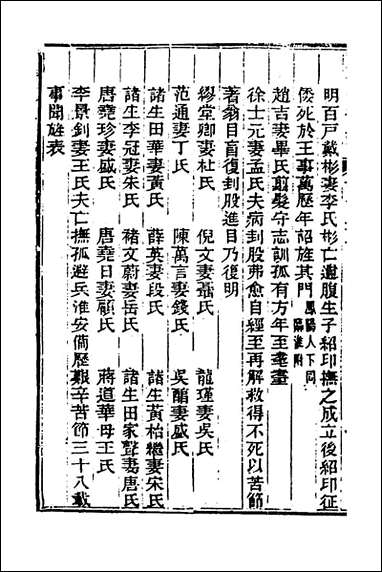 明百戶戴彬妻李氏彬亡遺腹生子紹印撫之成立後紹印征
倭死於王事萬歷年詔旌其門鳳陽人下同臨淮附
趙吉妻畢氏翦髮守志訓孤有方年至耄耋
徐士元妻孟氏夫病刲股弗愈自經至再解救得不死以苦節
著翁目盲復刲股進目乃復明
繆堂卿妻杜氏 倪文妻聶氏 龍瑾妻吳氏
范通妻丁氏 陳萬言妻錢氏 吳䤈妻盛氏
諸生田華妻黃氏 薛英妻段氏 諸生黃枱繼妻宋氏
諸生李冠妻朱氏 褚文蔚妻岳氏 諸生田家聲妻唐氏
唐堯珍妻戚氏 唐堯日妻顧氏 蔣道華母王氏
李景釗妻王氏夫亡撫孤避兵淮安備歷艱辛苦節三十八載
事聞旌表